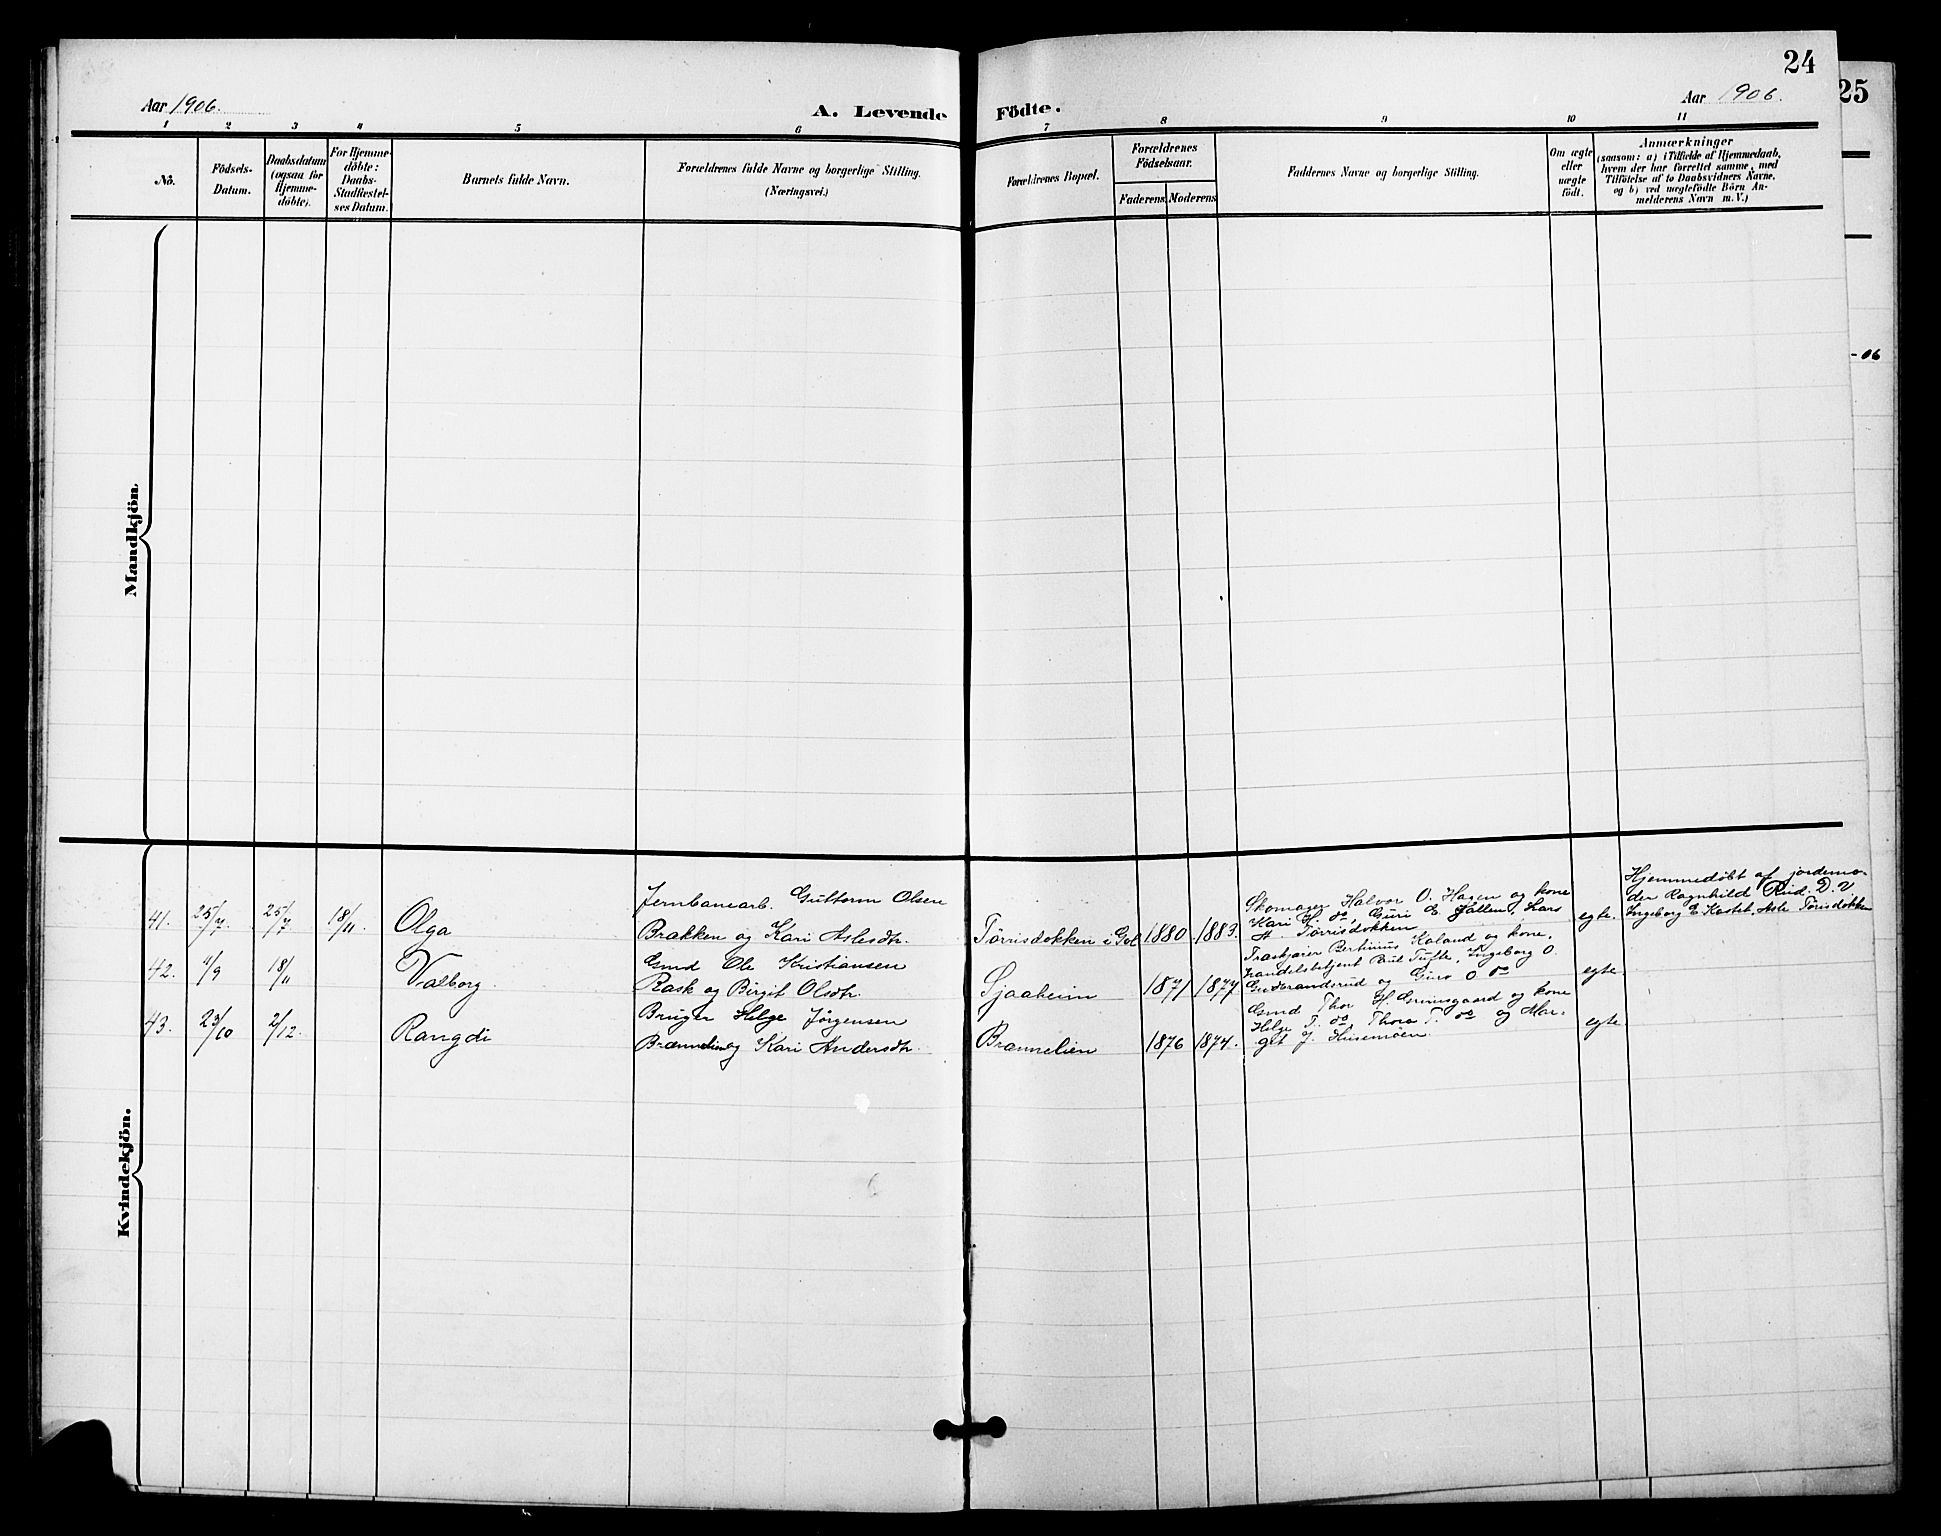 24
25
Aar 1906.
A. Levende Födte.
Aar 1906.
1 2 3 4 5 6 7 8 9 10 11
No.
Födsels-Datum.
Daabsdatum (ogsaa for Hjemme-döbte).
For Hjemme-döbte: Daabs-Stadfæstel-ses Datum.
Barnets fulde Navn.
Forældrenes fulde Navne og borgerlige Stilling. (Næringsvei.)
Forældrenes Bopæl.
Forældrenes Födselsaar.
Faderens Moderens
Faddernes Navne og borgerlige Stilling.
Om ægte eller uægte födt.
Anmærkninger
(saasom: a) i Tilfælde af Hjemmedaab,
hvem der har forrettet samme, med
Tilföielse af to Daabsvidners Navne,
og b) ved uægtefödte Börn An-
melderens Navn m. V.)
- 06
Mandkjön.
Kvindekjön.
41. 25/7. 25/7 18/11. Olga
Jernbanearb. Guttorm Olsen
Brakken og Kari Aslesdtr.
Tørrisdokken i Gol 1880 1883.
Skomager Halvor O. Hagen og kone
Kari H. do, Guri E. Jallem, Lars
H. Tørrisdokken
egte.
Hjemmedøbt af jordemo-
der Ragnhild Rud. D. V.
Ingeborg E Kastet, Asle Tørisdokken
42. 11/9 18/11 Valborg.
Gmd Ole Kristiansen
Rask og Birgit Olsdtr.
Sjaaheim 1871 1877
Træskjærer Bertinius Kaland og kone,
handelsbetjent Paul Tufte, Ingeborg O.
Guderandsrud og Guro O do
egte
43. 23/10 2/12. Rangdi
Bruger Helge Jørgensen
Brænnelien og Kari Andersdtr.
Brænnelien 1876 1874.
Gmd Thor H. Grimsgaard og kone
Helge T. do Thora T. do og Mar-
git J. Husemoen
egte